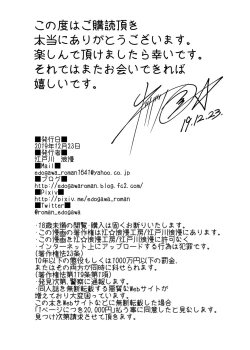 この度はご購読頂き
本当にありがとうございます。
楽しんで頂けましたら幸いです。
それではまたお会いできれば
嬉しいです。
19.12.23.
■発行日■
2019年12月23日
■発行者■
江戸川 浪漫
■Mail■
edogawa_roman1641@yahoo.co.jp
■ブログ■
http://edogawaroman.blog.fc2.com/
■Pixiv■
http://pixiv.me/edogawa_roman
■Twitter■
@roman_edogawa
・18歳未満の閲覧・購入は固くお断りいたします。
・この漫画の著作権は江戸浪漫工房/江戸川浪漫にあります。
・この漫画を江戸浪漫工房/江戸川浪漫に許可なく
インターネット上にアップロードする行為は犯罪です。
(著作権法23条)
10年以下の懲役もしくは1000万円以下の罰金、
またはその両方が同時に科せられます。
(著作権法第119条第1項)
・発見次第、警察に通報します。
・同人誌を無断転載する悪質なWebサイトが
増えており大変困っています。
このようなWebサイトなどに無断転載した場合
「1ページにつき20,000円」払う事に同意したと見なします。
見つけ次第請求させて頂きます。